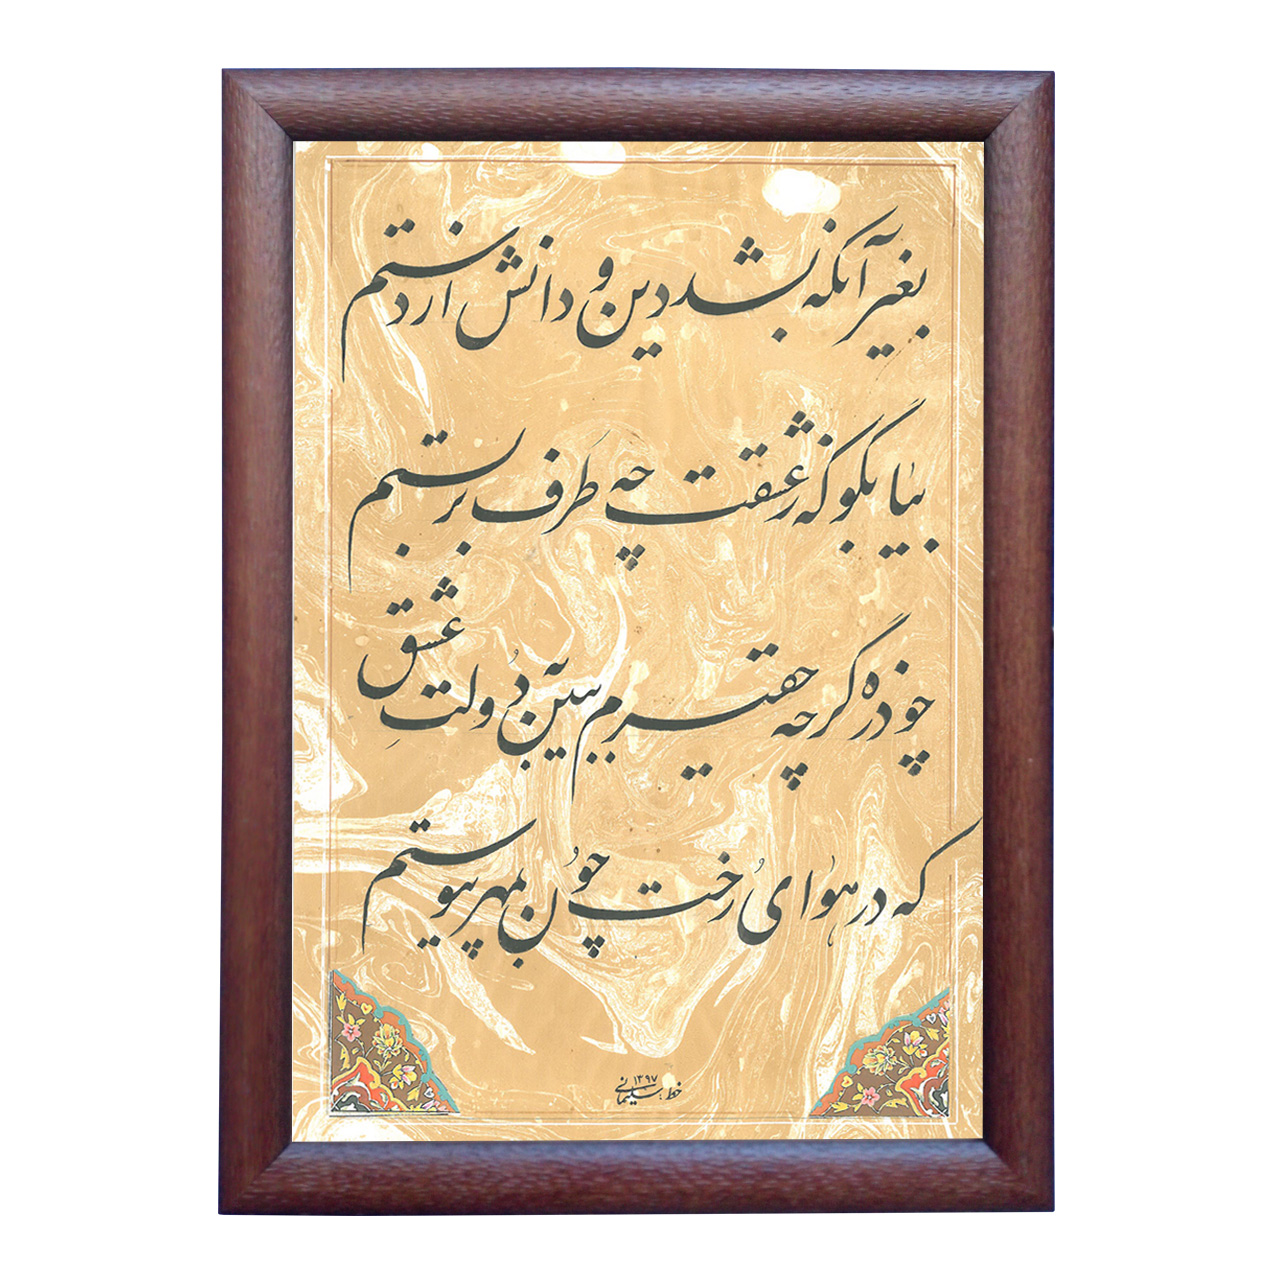 بغیر آنکه بشد دین و دانش از دستم
بیا بگو که ز عشقت چه طَرف بربستم
چو ذره گرچه حقیرم ببین به دُولتِ عشق
که در هوای رخت چون بمهر پیوستم
خط سلیمانی
۱۳۹۷